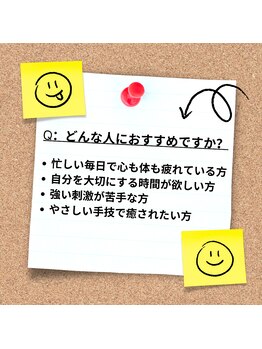 Q：どんな人におすすめですか?
• 忙しい毎日で心も体も疲れている方
• 自分を大切にする時間が欲しい方
• 強い刺激が苦手な方
• やさしい手技で癒されたい方